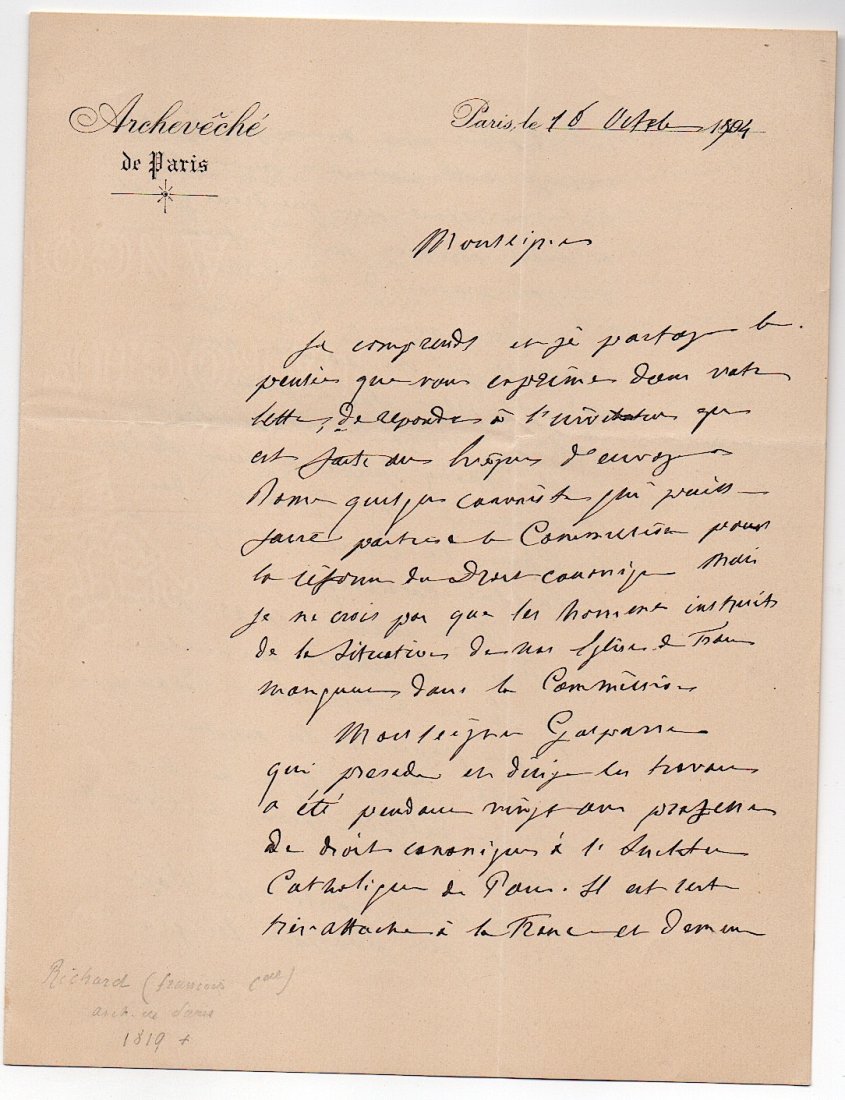 Archevêché
de Paris
Paris, le 16 Octob 1904
Monseigneur
Je comprends et je partage la
pensée que vous exprimez dans votre
lettre, de répondre à l'invitation qui
est faite aux Evêques d'envoyer à
Rome quelques canonistes qui puissent
faire partie de la Commission pour
la réforme du Droit canonique Mais
je ne crois pas que les hommes instruits
de la situation de nos Eglises de France
manquent dans la Commission
Monseigneur Gasparri
qui préside et dirige les travaux
a été pendant vingt ans professeur
de droit canonique à l'Institut
Catholique de Paris. Il est resté
très-attaché à la France et demeure
Richard (françois Cal)
arch. de Paris
1819 +